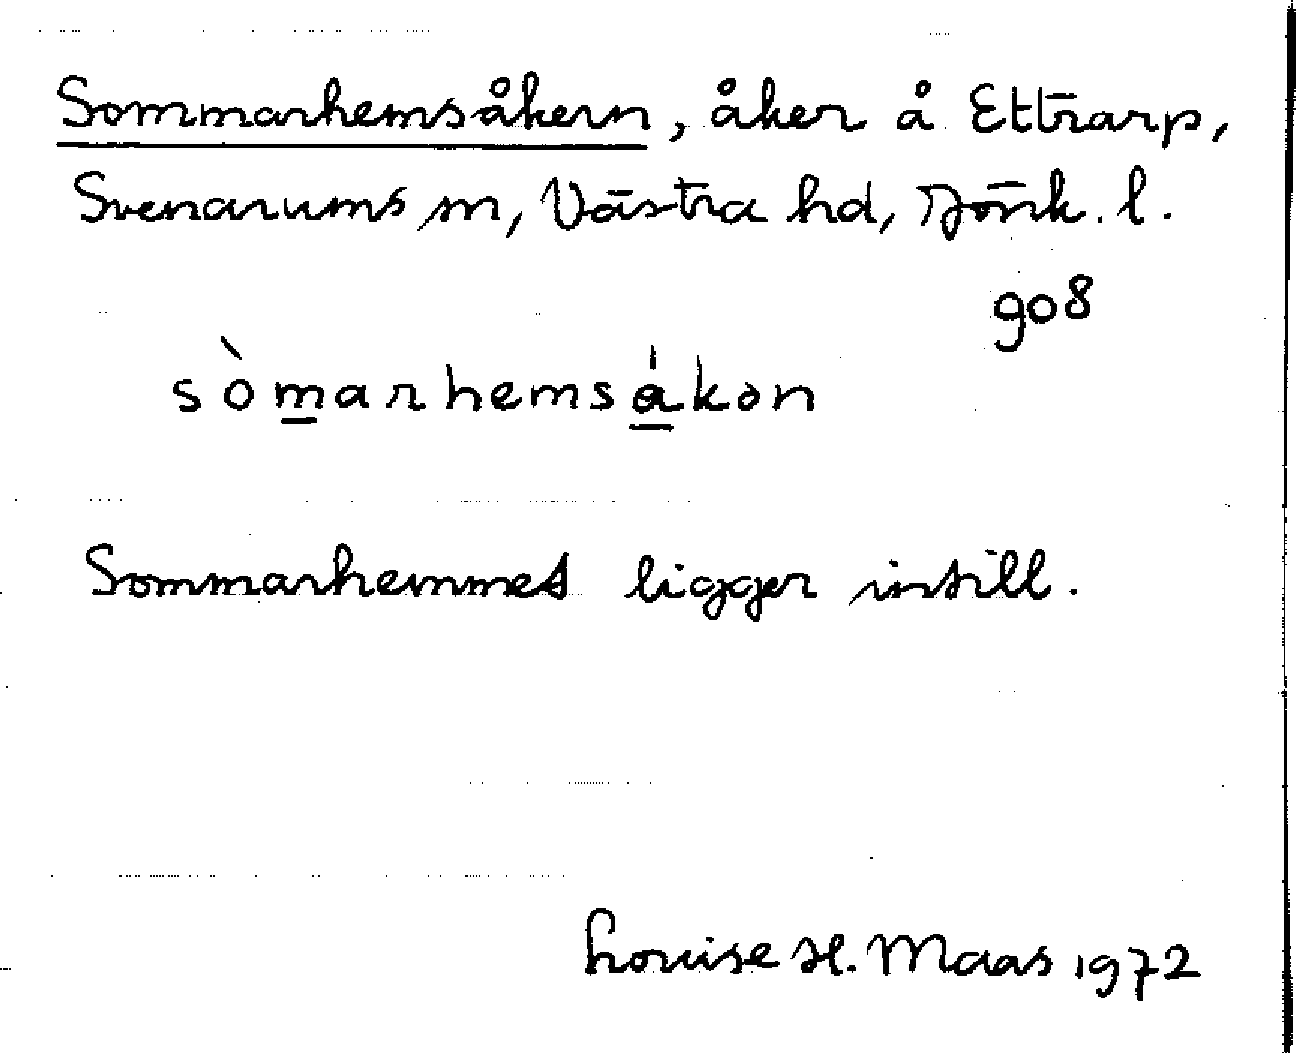 Sommarhemsåkern, åker å Ettrarp,
Svenarums sn, Västra hd, Jönk. l.
908
sòmarhemsákon
Sommarhemmet ligger intill.
Louise H. Maas 1972